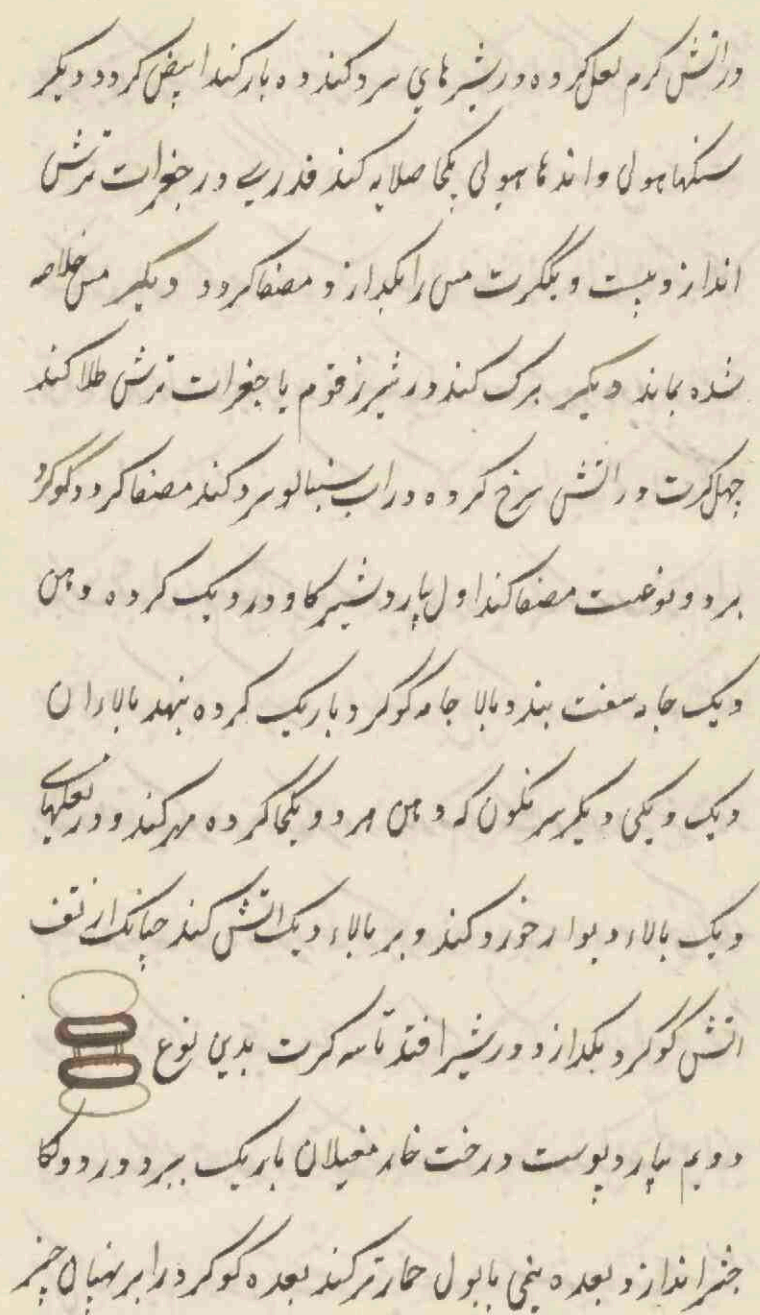 دراتش کرم لعل کرده در شیرهای سرد کند ده بار کند ابیض کردد دیکر
سنکها هولی و اندها هولی یکجا صلایه کند قدری در جغرات ترش
اندازد بیست و یککرت مس را بکدازد مصفا کردد دیکر مس خلاصه
شده بماند دیکر برک کند در شیر زقوم یا جغرات ترش طلا کند
چهل کرت در اتش سرخ کرده در اب سنبالو سرد کند مصفا کردد کوکرد
بر دو نوعست مصفا کند اول بیارد شیر کاو در دیک کرده دهن
دیک جامه سفت بندد بالا جامه کوکرد باریک کرده بنهد بالاء ان
دیک دیکی دیکر سرنکون که دهن هر دو یکجا کرده مهر کند و در
دیک بالاء دیوار خورد کند و بر بالاء دیک اتش کند چنانک از تف
اتش کوکرد بکدازد در شیر افتد تا سه کرت بدین نوع
دویم بیارد پوست درخت خار مغیلان باریک ببرد در دوکا
چیز اندازد بعده یخی بابول حمار تر کند بعده کوکرد را بر چیز